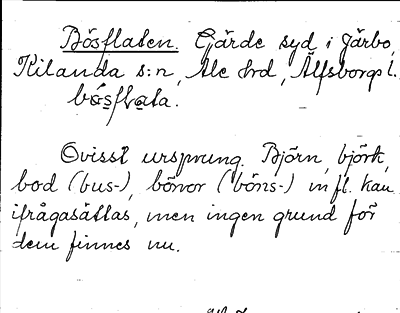 Bösflaten. Gärde syd i Järbo,
Kilanda s:n, Ale hrd, Älfsborgs l.
bö́sflata.
Ovisst ursprung. Björn, björk,
bod (bus-), bönor (böns-) m fl. kan
ifrågasättas, men ingen grund för
dem finnes nu.